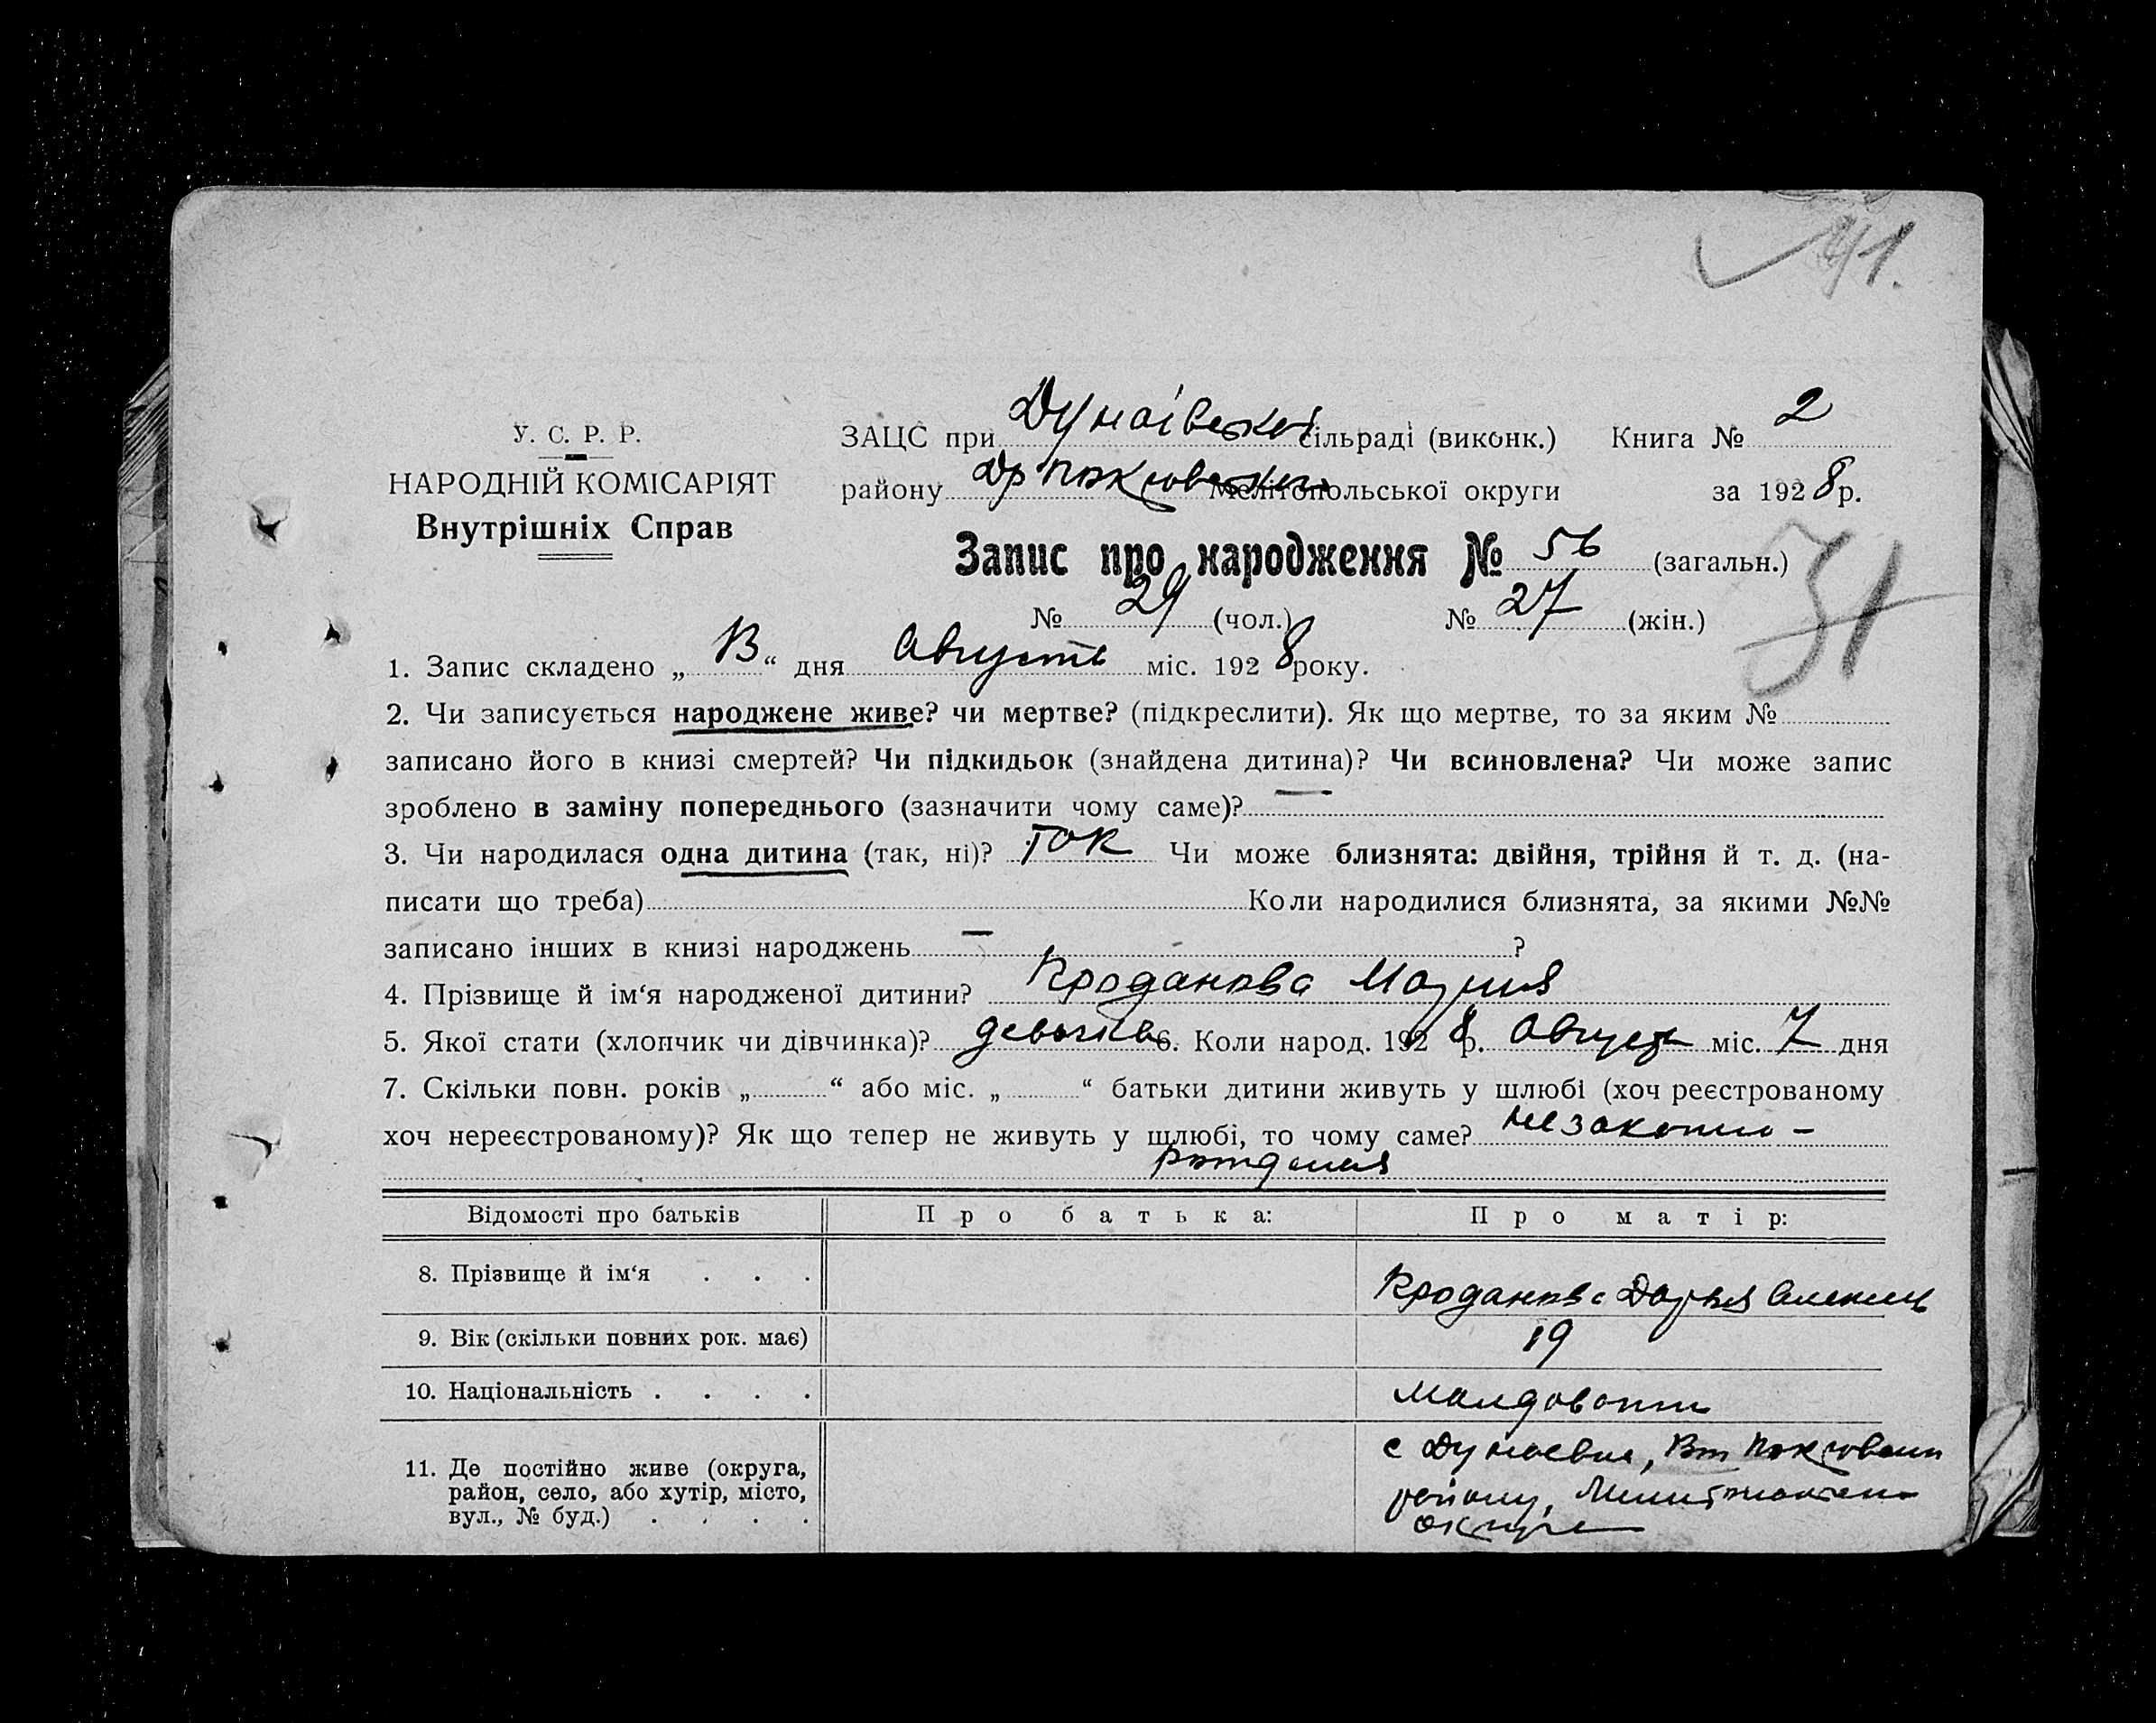 41.
У. С. Р. Р.
НАРОДНІЙ КОМІСАРІЯТ
Внутрішніх Справ
ЗАЦС при Дунаївській сільраді (виконк.) Книга № 2
району Мелітопольської округи за 1928 р.
Запис про народження № 56 (загальн.)
31
№ 29 (чол.) № 27 (жін.)
1. Запис складено „ “ дня Августь міс. 1928 року.
2. Чи записується народжене живе? чи мертве? (підкреслити). Як що мертве, то за яким №
записано його в книзі смертей? Чи підкидьок (знайдена дитина)? Чи всиновлена? Чи може запис
зроблено в заміну попереднього (зазначити чому саме)? —
3. Чи народилася одна дитина (так, ні)? так Чи може близнята: двійня, трійня й т. д. (на-
писати що треба) Коли народилися близнята, за якими №№
записано інших в книзі народжень — ?
4. Прізвище й ім‘я народженої дитини? Кроданова Мария
5. Якої стати (хлопчик чи дівчинка)? девочка 6. Коли народ. 1928 р. Август міс. 7 дня
7. Скільки повн. років „ “ або міс. „ “ батьки дитини живуть у шлюбі (хоч реєстрованому
хоч нереєстрованому)? Як що тепер не живуть у шлюбі, то чому саме? незаконно-
рожденая
Відомості про батьків Про батька: Про матір:
8. Прізвище й ім‘я . . . Кроданова Дарья
9. Вік (скільки повних рок. має) 19
10. Національність . . . . молдован
11. Де постійно живе (округа,
район, село, або хутір, місто,
вул., № буд.) . . . .
с Дунаевка,
району,
округи